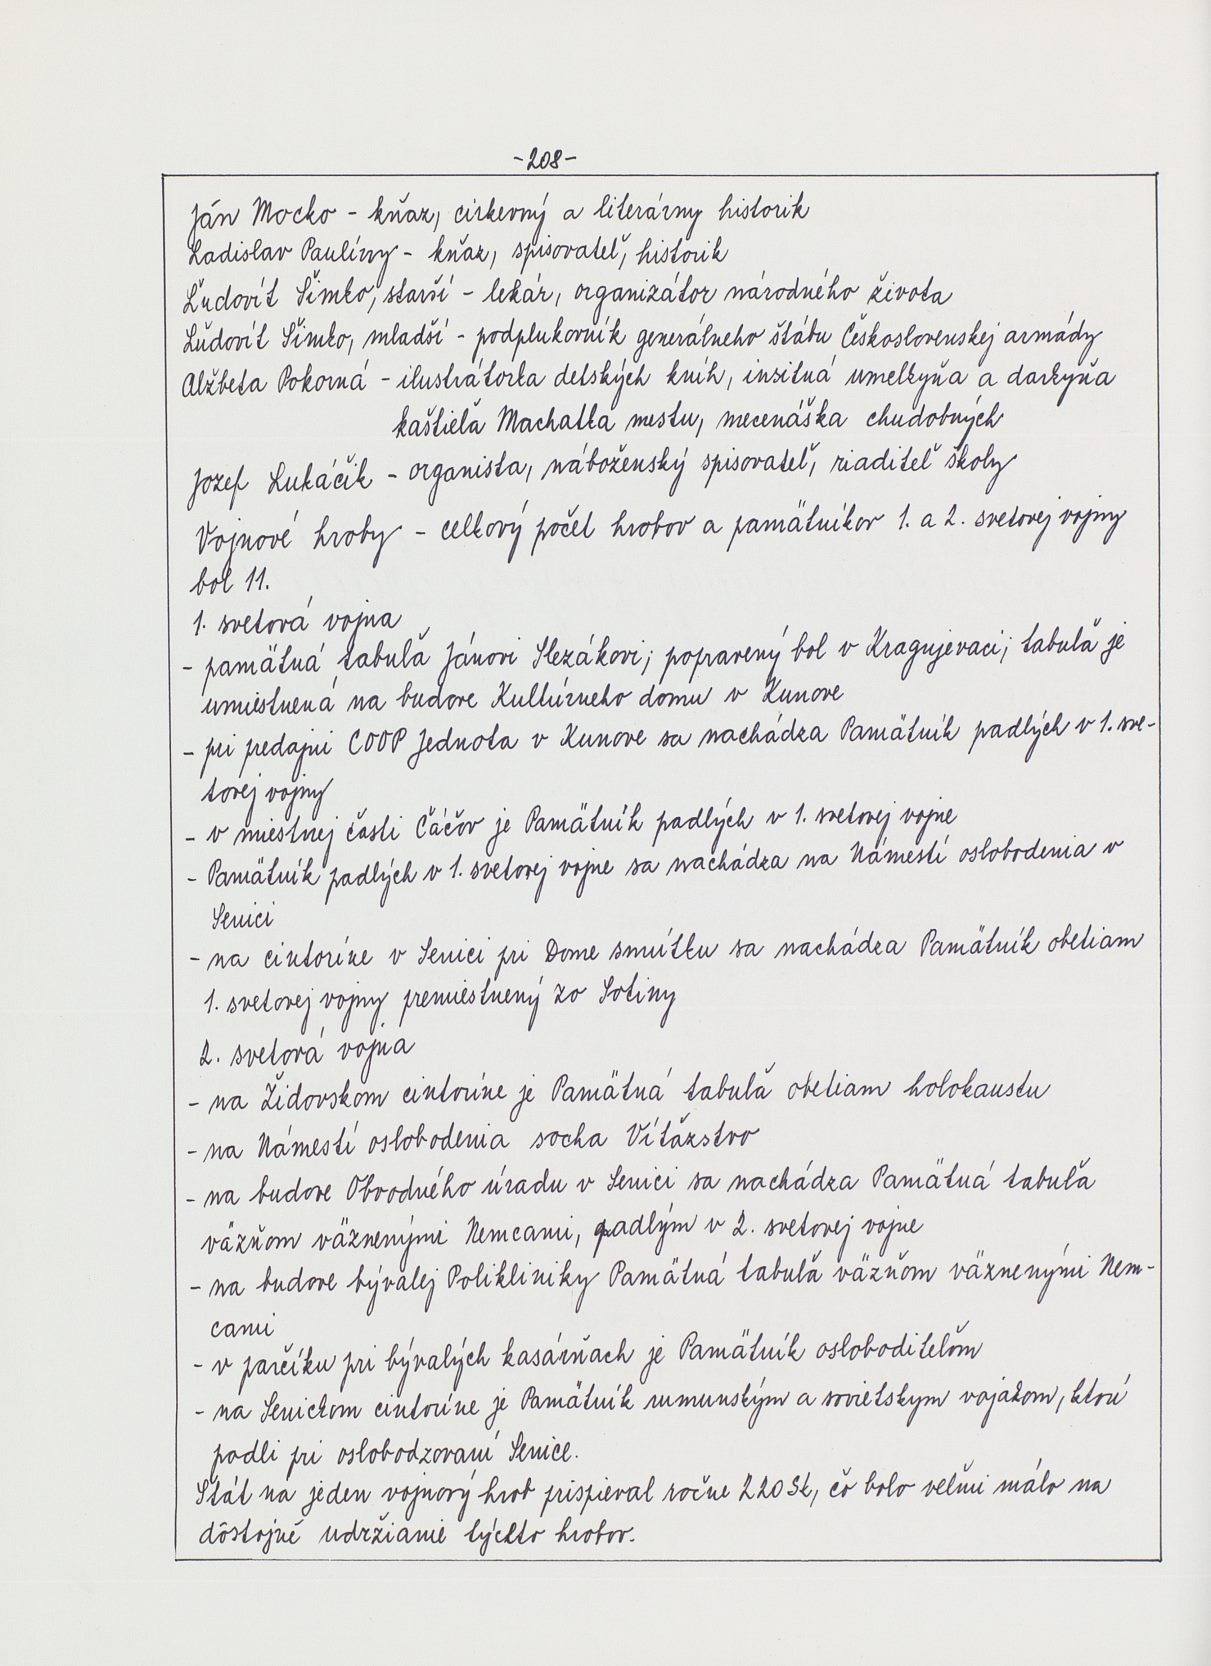 -208-
Ján Mocko - kňaz, cirkevný a literárny historik
Ladislav Paulíny - kňaz, spisovateľ, historik
Ľudovít Šimko, starší - lekár, organizátor národného života
Ľudovít Šimko, mladší - podplukovník generálneho štábu Československej armády
Alžbeta Pokorná - ilustrátorka detských kníh, insitná umelkyňa a darkyňa
kaštieľa Machatka mestu, mecenáška chudobných
Jozef Lukáčik - organista, náboženský spisovateľ, riaditeľ školy
Vojnové hroby - celkový počet hrobov a pamätníkov 1. a 2. svetovej vojny
bol 11.
1. svetová vojna
- pamätná tabuľa Jánovi Slezákovi; popravený bol v Kragujevaci; tabuľa je
umiestnená na budove Kultúrneho domu v Kunove
- pri predajni COOP Jednota v Kunove sa nachádza Pamätník padlých v 1. sve-
tovej vojny
- v miestnej časti Čáčov je Pamätník padlých v 1. svetovej vojne
- Pamätník padlých v 1. svetovej vojne sa nachádza na Námestí oslobodenia v
Senici
- na cintoríne v Senici pri Dome smútku sa nachádza Pamätník obetiam
1. svetovej vojny premiestnený zo Sotiny
2. svetová vojna
- na Židovskom cintoríne je Pamätná tabuľa obetiam holokaustu
- na Námestí oslobodenia socha Víťazstvo
- na budove Obvodného úradu v Senici sa nachádza Pamätná tabuľa
väzňom väznenými Nemcami, padlým v 2. svetovej vojne
- na budove bývalej Polikliniky Pamätná tabuľa väzňom väznenými Nem-
cami
- v parčíku pri bývalých kasárňach je Pamätník osloboditeľom
- na Senickom cintoríne je Pamätník rumunským a sovietskym vojakom, ktorí
padli pri oslobodzovaní Senice.
Štát na jeden vojnový hrob prispieval ročne 220 Sk, čo bolo veľmi málo na
dôstojné udržianie týchto hrobov.